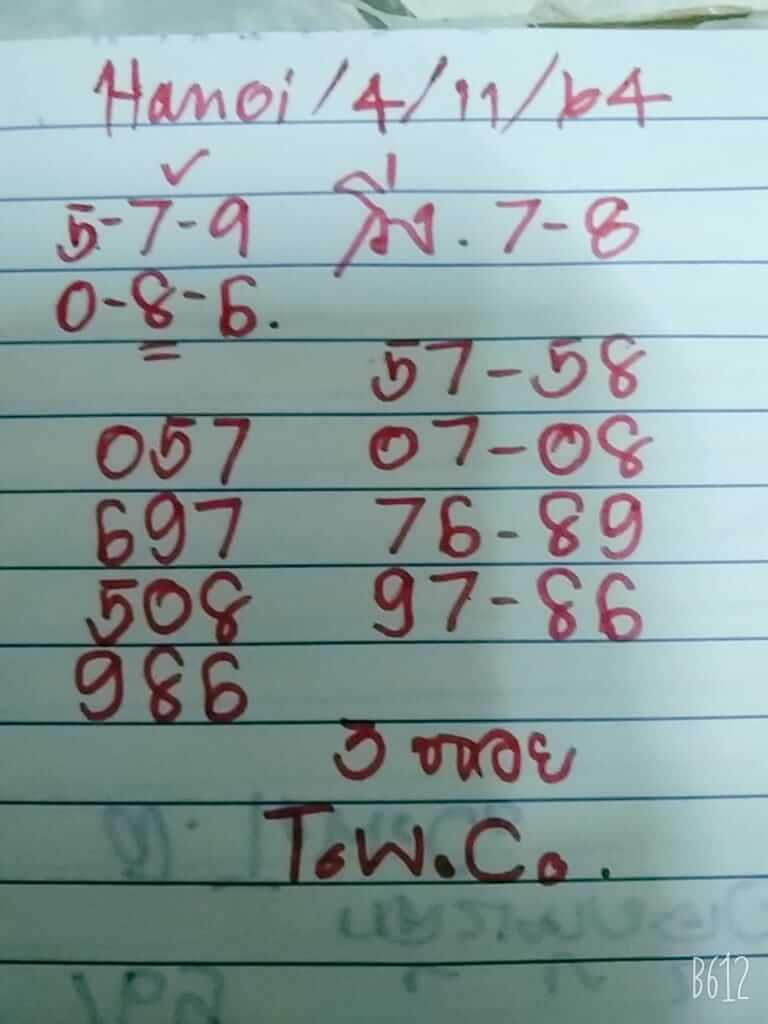 Hanoi/4/11/64
5-7-9 วิ่ง. 7-8
0-8-6.
57-58
057 07-08
697 76-89
508 97-86
986
T.W.Co.
B612